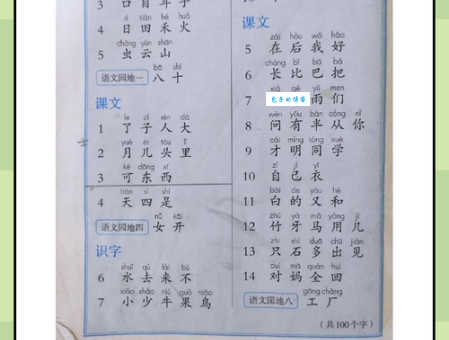 3 口目耳手
rì tián hé huǒ
4 日田禾火
chóng yún shān
5 虫云山
bā shí
语文园地一 八十
课文
le zǐ rén dà
1 了子人大
yuè ér tóu lǐ
2 月儿头里
kě dōng xī
3 可东西
tiān sì shì
4 天四是
nǚ kāi
语文园地四 女开
识字
shuǐ qù lái bù
6 水去来不
xiǎo shǎo niú guǒ niǎo
7 小少牛果鸟
课文
zài hòu wǒ hǎo
5 在后我好
cháng bǐ bā bǎ
6 长比巴把
xià gè yǔ men
7 包子的博客 雨们
wèn yǒu bàn cóng nǐ
8 问有半从你
cái míng tóng xué
9 才明同学
zì jǐ yī
10 自己衣
bái de yòu hé
11 白的又和
zhú yá mǎ yòng jǐ
12 竹牙马用几
zhǐ shí duō chū jiàn
13 只石多出见
duì mā quán huí
14 对妈全回
gōng chǎng
语文园地八 工厂
（共100个字）